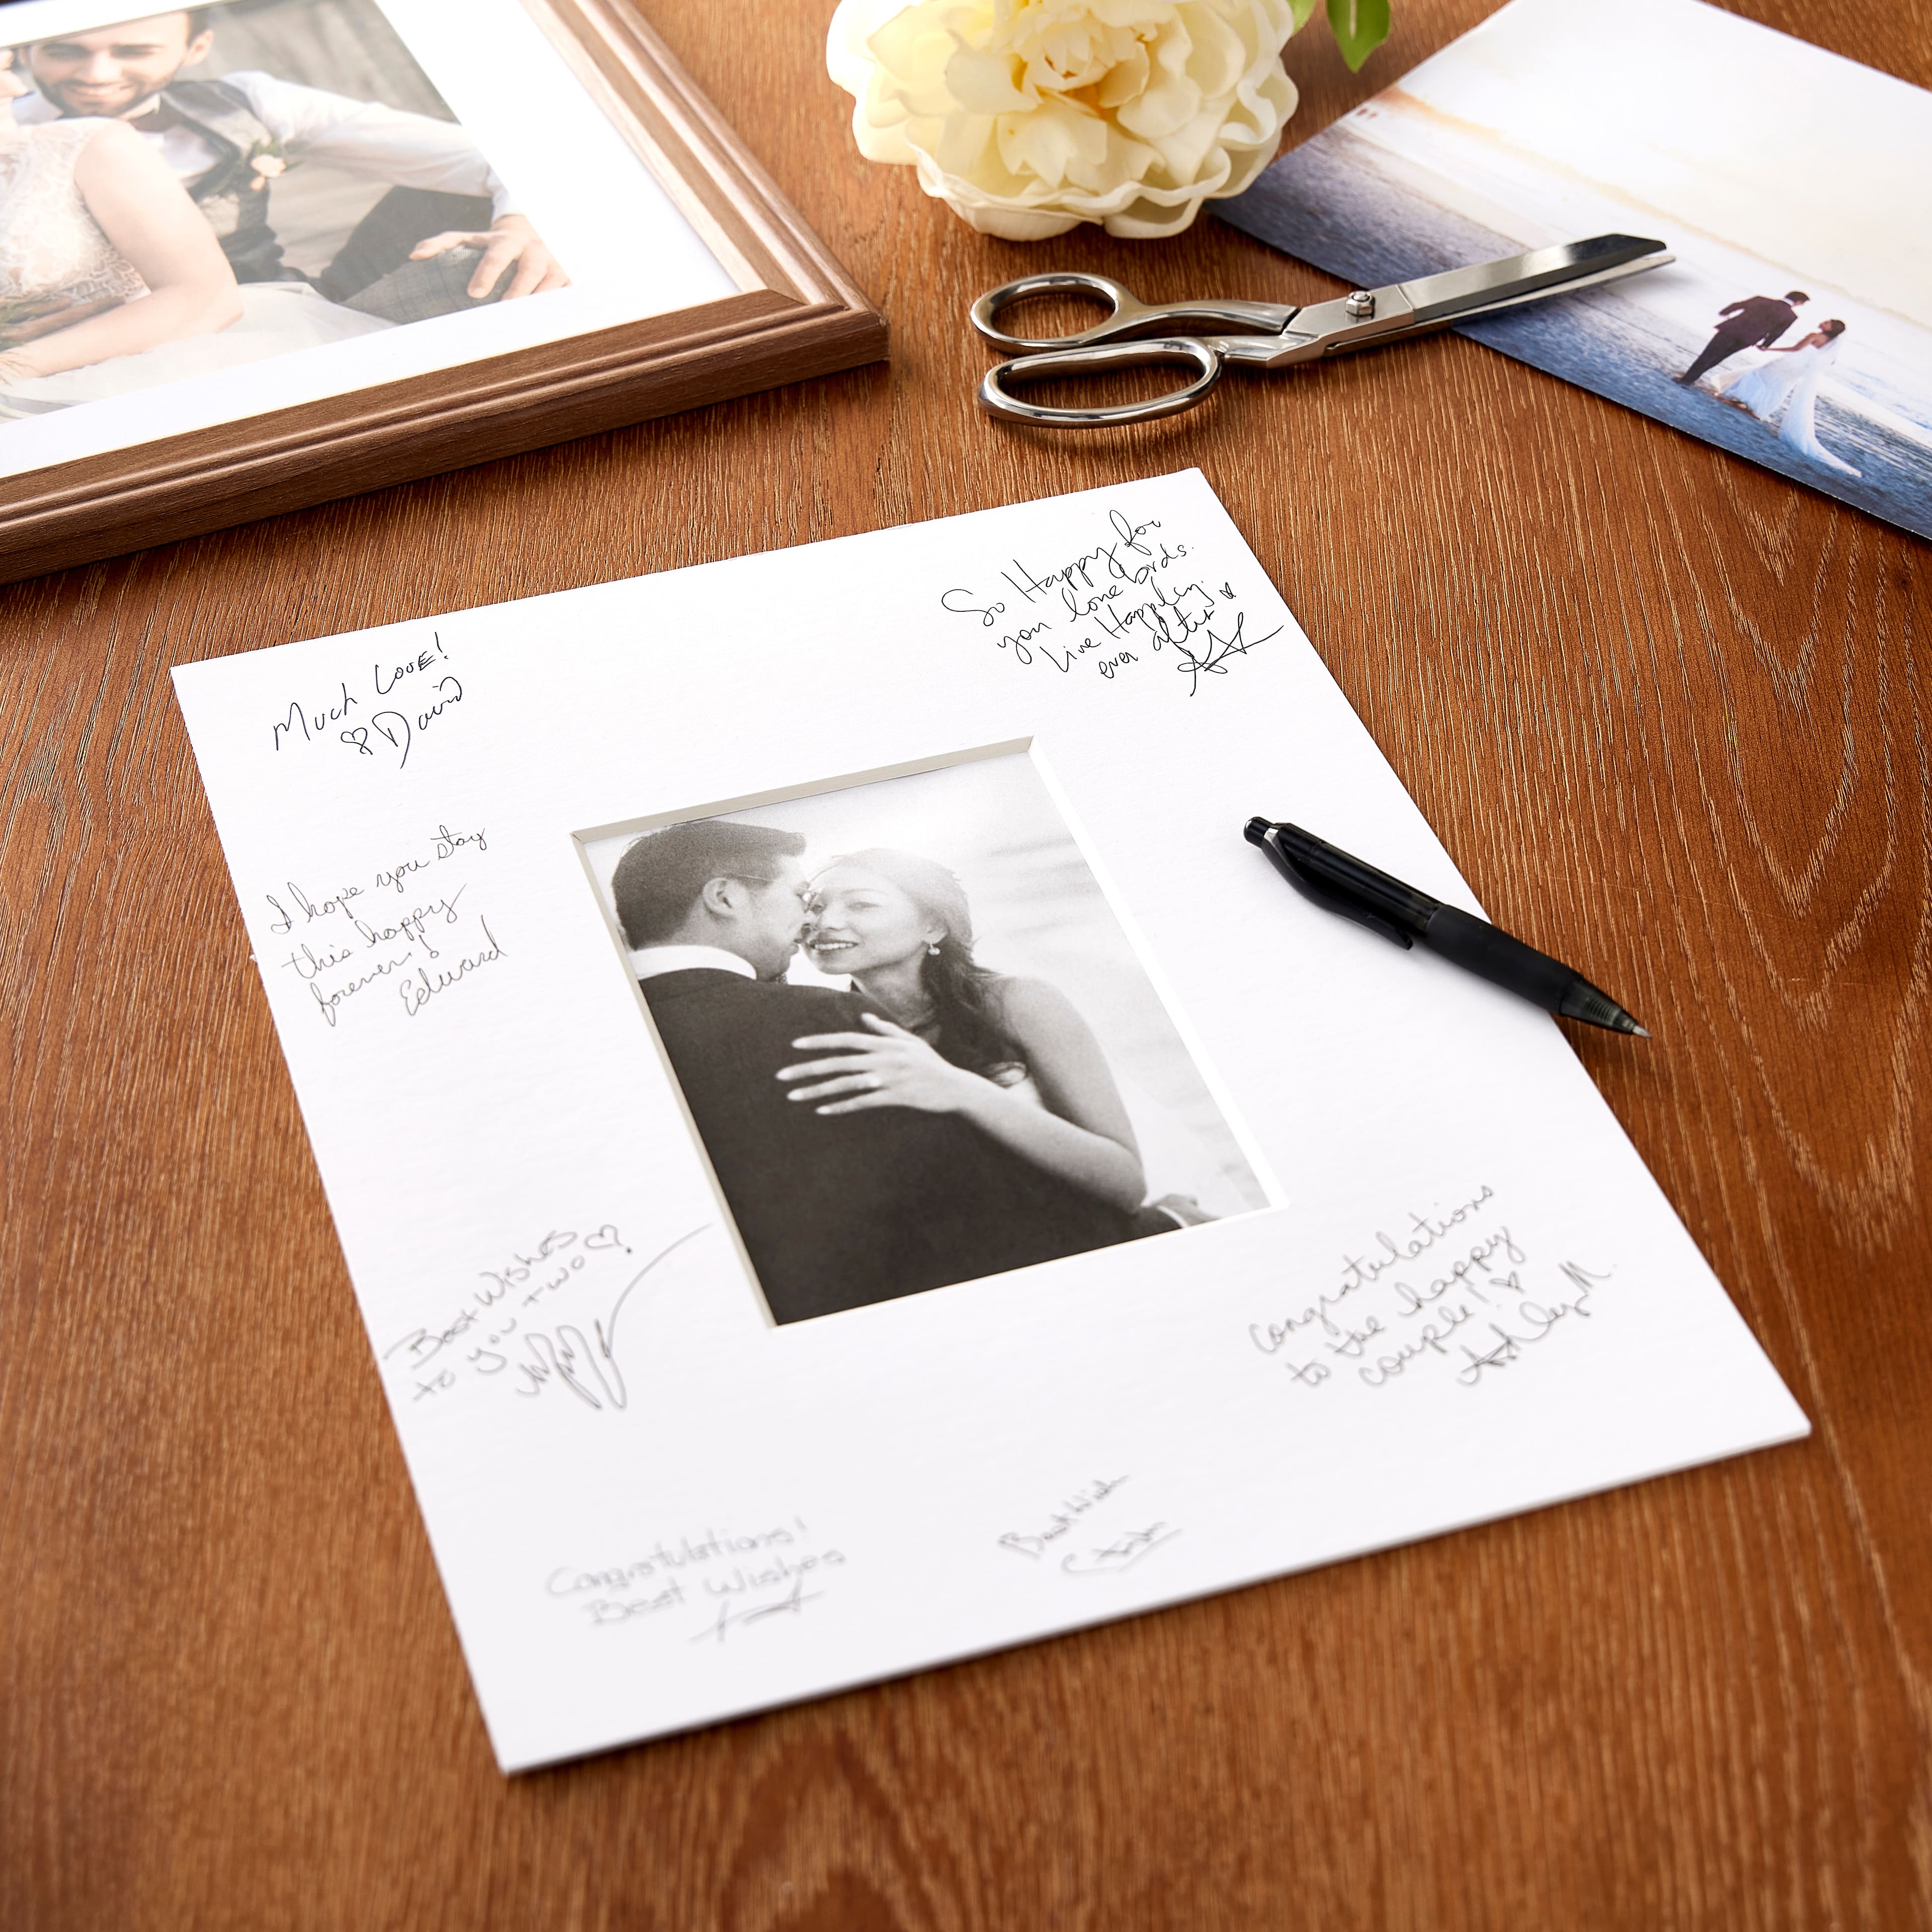 Much Love!
David
So Happy for
you love birds.
Live Happley
ever after
I hope you stay
this happy
forever!
Edward
Best Wishes
to you two
Congratulations
to the happy
couple!
Ashley M.
Congratulations!
Best Wishes
Best Wishes